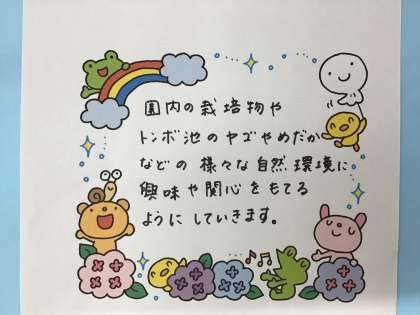 園内の栽培物や
トンボ池のヤゴやめだか
などの様々な自然環境に
興味や関心をもてる
ようにしていきます。